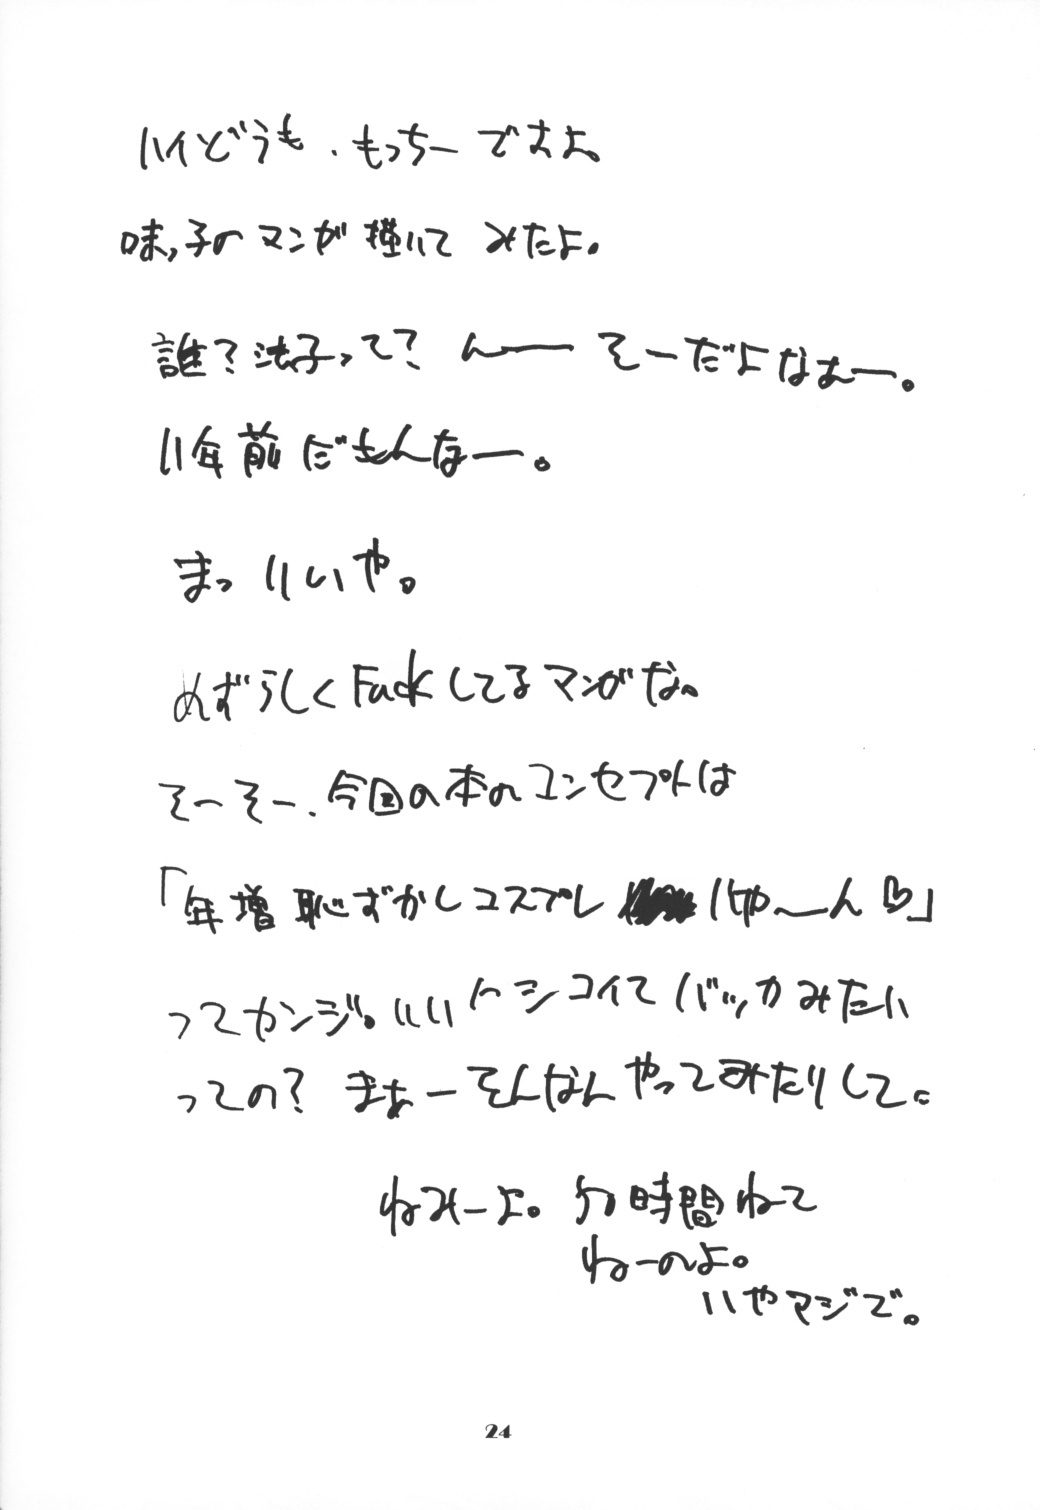 ハイどうも、もっちーですよ。
味っ子のマンガ描いてみたよ。
誰？法子って？んーーそーだよなぁー。
11年前だもんなー。
まっいいや。
めずらしくFuckしてるマンガな。
そーそー、今回の本のコンセプトは
「年増恥ずかしコスプレいや〜ん♡」
ってカンジ。いいトシコイてバッカみたい
っての？まぁーそんなんやってみたりして。
ねみーよ。時間ねて
ねーのよ。
いやマジで。
24